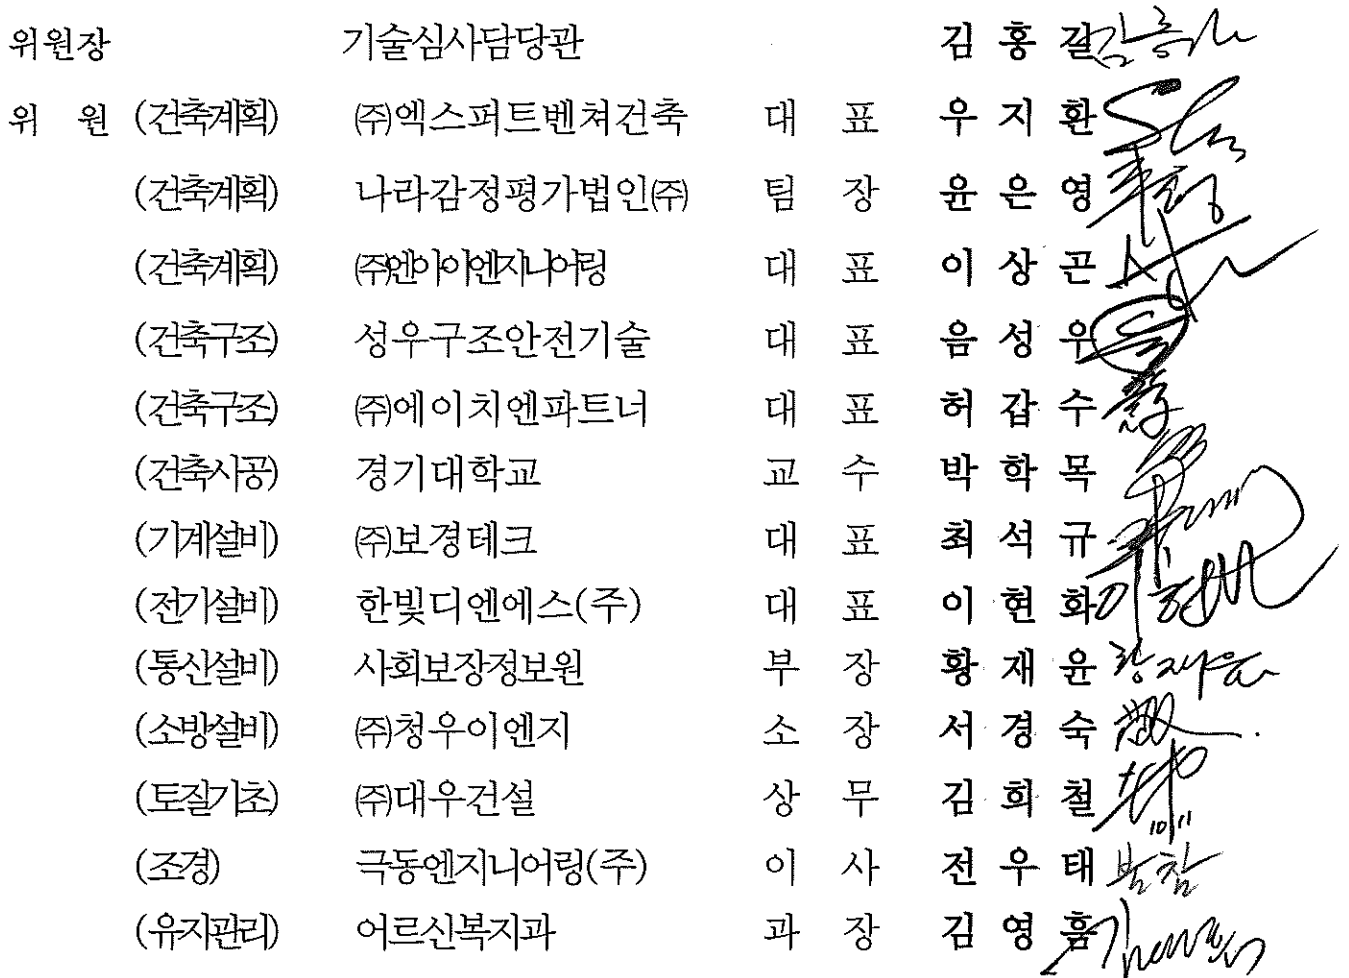 위원장 기술심사담당관 김 홍 길
위 원 (건축계획) ㈜엑스퍼트벤쳐건축 대 표 우 지 환
(건축계획) 나라감정평가법인㈜ 팀 장 윤 은 영
(건축계획) ㈜엔아이엔지니어링 대 표 이 상 곤
(건축구조) 성우구조안전기술 대 표 음 성 우
(건축구조) ㈜에이치엔파트너 대 표 허 갑 수
(건축시공) 경기대학교 교 수 박 학 목
(기계설비) ㈜보경테크 대 표 최 석 규
(전기설비) 한빛디엔에스(주) 대 표 이 현 화
(통신설비) 사회보장정보원 부 장 황 재 윤 황재윤
(소방설비) ㈜청우이엔지 소 장 서 경 숙
(토질기초) ㈜대우건설 상 무 김 희 철 10/11
(조경) 극동엔지니어링(주) 이 사 전 우 태 불참
(유지관리) 어르신복지과 과 장 김 영 흠